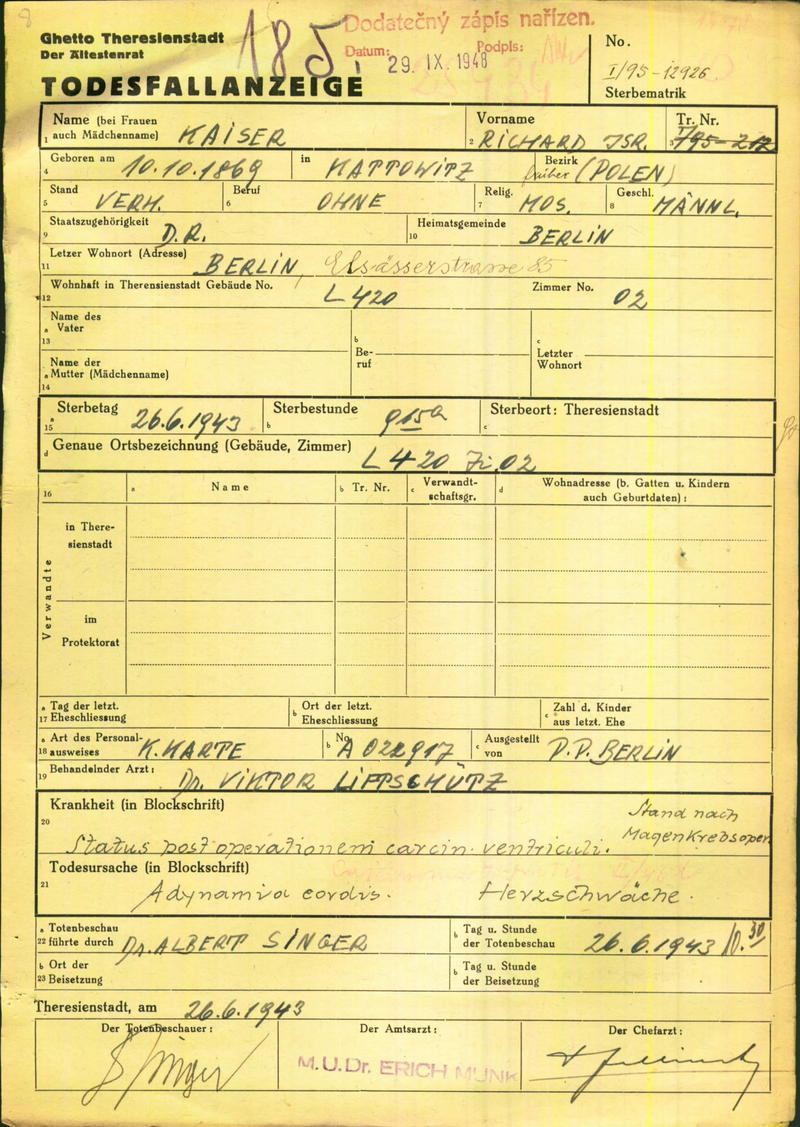 8
Ghetto Theresienstadt
Der Ältestenrat
TODESFALLANZEIGE
185.
Dodatečný zápis nařízen.
Datum: 29 IX. 1948 Podpis:
No.
I/95-12926
Sterbematrik
Name (bei Frauen auch Mädchenname) KAISER
1
Vorname
2 RICHARD ISR.
Tr. Nr.
3 I/95-212
Geboren am 10.10.1869 in KATTOWITZ Bezirk früher (POLEN)
4
Stand Beruf Relig. Geschl.
5 VERH. 6 OHNE 7 MOS. 8 MÄNNL.
Staatszugehörigkeit Heimatsgemeinde
9 D.R. 10 BERLIN
Letzer Wohnort (Adresse)
11 BERLIN, Elsässerstrasse 85
Wohnhaft in Theresienstadt Gebäude No. Zimmer No.
12 L 420 02
a Name des Vater
13
b Beruf
c Letzter Wohnort
a Name der Mutter (Mädchenname)
14
a Sterbetag b Sterbestunde c Sterbeort: Theresienstadt
15 26.6.1943 9 15 a
d Genaue Ortsbezeichnung (Gebäude, Zimmer)
L 420 Zi. 02
16 a Name b Tr. Nr. c Verwandtschaftsgr. d Wohnadresse (b. Gatten u. Kindern auch Geburtdaten):
Verwandte
in Theresienstadt
im Protektorat
a Tag der letzt. b Ort der letzt. c Zahl d. Kinder
17 Eheschliessung Eheschliessung aus letzt. Ehe
a Art des Personal- b No. c Ausgestellt
18 ausweises K.KARTE A 022917 von P.P. BERLIN
Behandelnder Arzt:
19 Dr. VIKTOR LIPPSCHÜTZ
Krankheit (in Blockschrift) Stand nach
20 Magenkrebsoper.
Status post operationem carcin. ventriculi.
Todesursache (in Blockschrift)
21 Adynamia cordis. Herzschwäche.
a Totenbeschau b Tag u. Stunde
22 führte durch Dr. ALBERT SINGER der Totenbeschau 26.6.1943 10.30
b Ort der b Tag u. Stunde
23 Beisetzung der Beisetzung
Theresienstadt, am 26.6.1943
Der Totenbeschauer: Der Amtsarzt: Der Chefarzt:
Singer M.U.Dr. ERICH MUNK